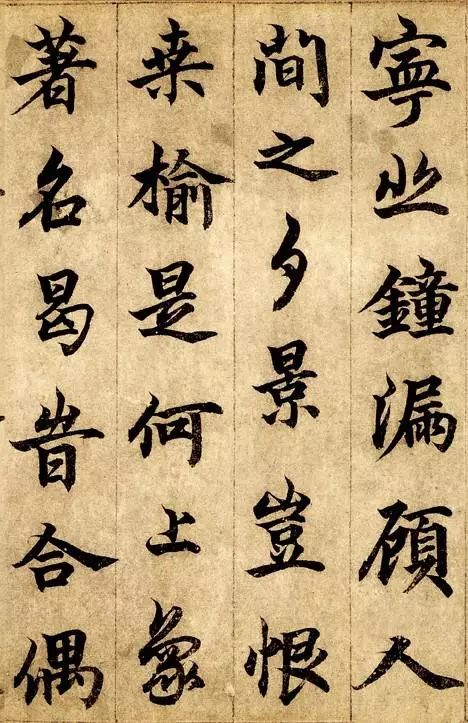 寧止鐘漏顧人
間之夕景豈恨
桒榆是何上象
著名曷旹合偶